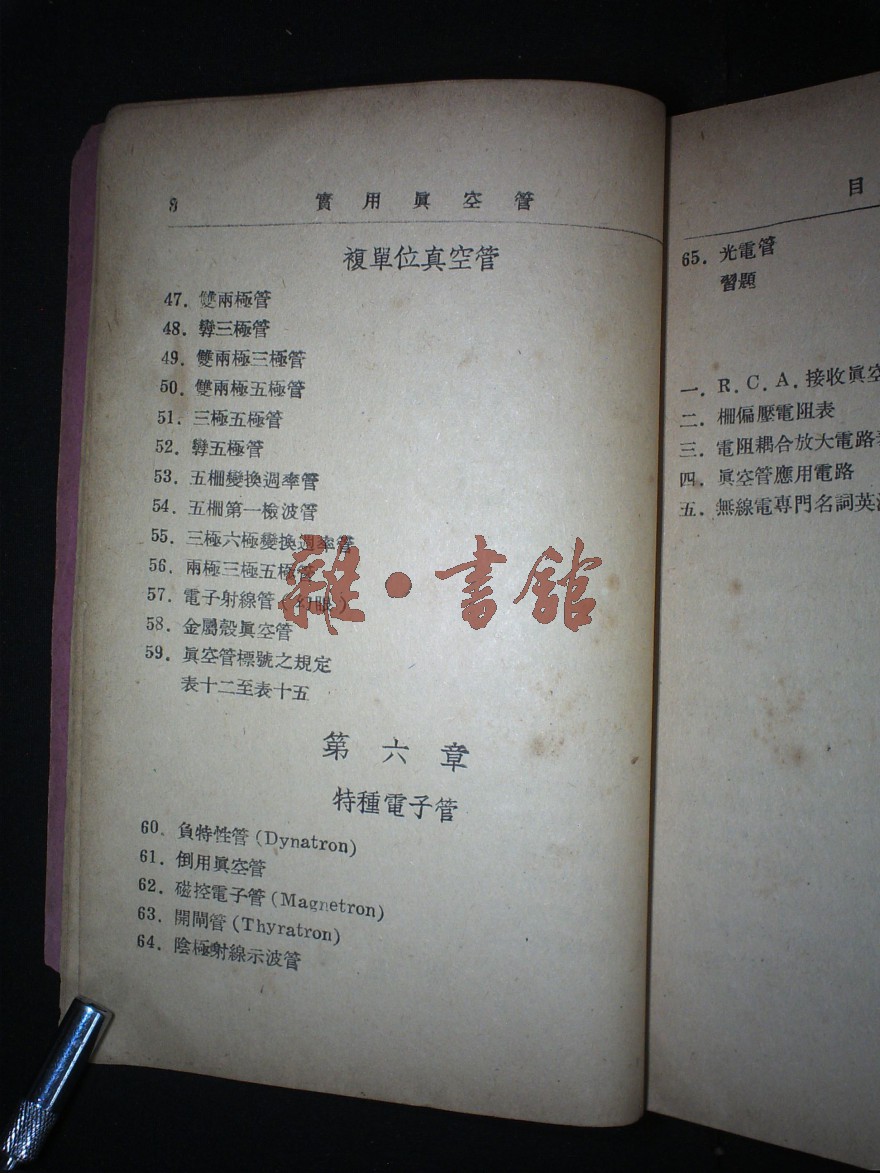 8 實用眞空管
複單位真空管
47. 雙兩極管
48. 孿三極管
49. 雙兩極三極管
50. 雙兩極五極管
51. 三極五極管
52. 孿五極管
53. 五柵變換週率管
54. 五柵第一檢波管
55. 三極六極變換週率管
56. 兩極三極五極管
57. 電子射線管(幻眼)
58. 金屬殼眞空管
59. 眞空管標號之規定
表十二至表十五
第六章
特種電子管
60. 負特性管(Dynatron)
61. 倒用眞空管
62. 磁控電子管(Magnetron)
63. 開閘管(Thyratron)
64. 陰極射線示波管
雜·書館
目
65. 光電管
習題
一. R.C.A.接收眞空
二. 柵偏壓電阻表
三. 電阻耦合放大電路
四. 眞空管應用電路
五. 無線電專門名詞英